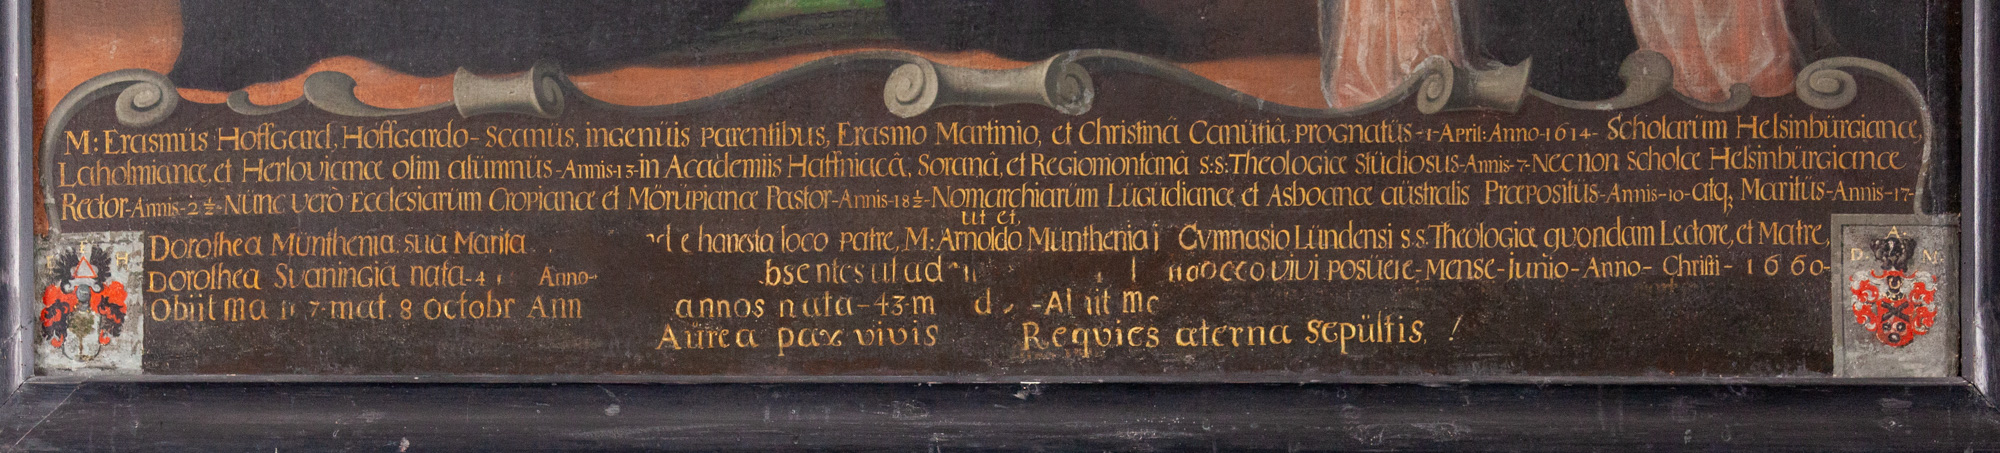 M: Erasmüs Hoffgard, Hoffgardo-Scanüs, ingenüis parentibus, Erasmo Martinio, et Christinâ Canütiâ prognatüs-1-April: Anno-1614- Scholarüm Helsinbürgianæ,
Laholmianæ, et Herlovianæ olim alümnüs-Annis-13-in Academiis Haffniacâ, Soranâ, et Regiomontanâ s:s: Theologiæ stüdiosus-Annis-7-Nec non scholæ Helsinbürgianæ
Rector-Annis-2½-Nünc verò Ecclesiarüm Cropianæ et Mörüpianæ Pastor-Annis-18½-Nomarchiarüm Lügüdianæ, et Asboanæ aüstralis Præpositüs-Annis-10-atq; Maritüs-Annis-17-
ut et,
Dorothea Münthenia sua Marita honesta loco patre, M: Arnoldo Münthenia Gymnasio Lündensi s.s. Theologiæ quondam Lectore, et Matre,
Dorothea Svaningia nata-4 Anno- vivi posüere-Mense-Junio-Anno-Christi-1660-
Obiit 7 mat 8 octobr Ann annos nata-43-m
Aürea pax vivis Requies æterna sepültis !
F
H
D
A
M